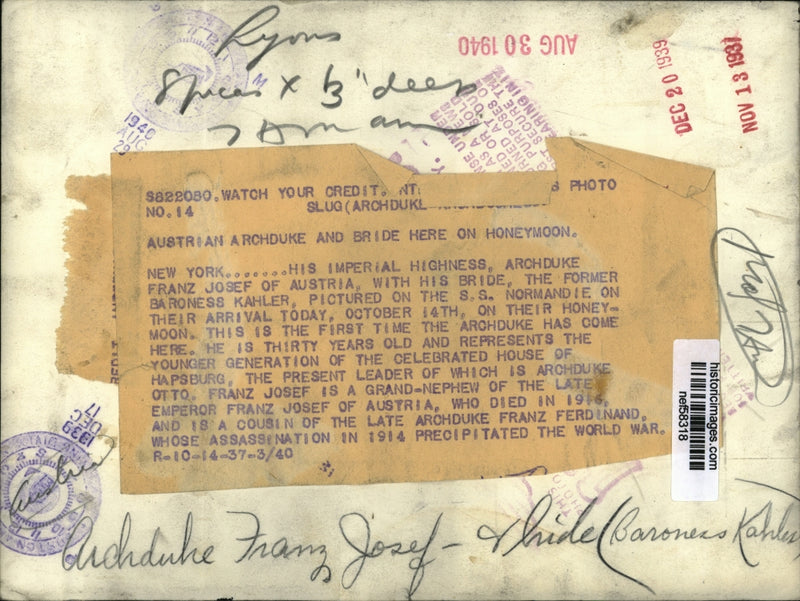 Lyons
AUG 30 1940
DEC 20 1939
NOV 13 1937
1940
AUG
29
S822080.WATCH YOUR CREDIT. PHOTO
NO.14 SLUG(ARCHDUKE
AUSTRIAN ARCHDUKE AND BRIDE HERE ON HONEYMOON.
NEW YORK.......HIS IMPERIAL HIGHNESS, ARCHDUKE
FRANZ JOSEF OF AUSTRIA, WITH HIS BRIDE, THE FORMER
BARONESS KAHLER, PICTURED ON THE S.S. NORMANDIE ON
THEIR ARRIVAL TODAY, OCTOBER 14TH, ON THEIR HONEY-
MOON. THIS IS THE FIRST TIME THE ARCHDUKE HAS COME
HERE. HE IS THIRTY YEARS OLD AND REPRESENTS THE
YOUNGER GENERATION OF THE CELEBRATED HOUSE OF
HAPSBURG, THE PRESENT LEADER OF WHICH IS ARCHDUKE
OTTO. FRANZ JOSEF IS A GRAND-NEPHEW OF THE LATE
EMPEROR FRANZ JOSEF OF AUSTRIA, WHO DIED IN 1916,
AND IS A COUSIN OF THE LATE ARCHDUKE FRANZ FERDINAND,
WHOSE ASSASSINATION IN 1914 PRECIPITATED THE WORLD WAR.
R-10-14-37-3/40
historicimages.com
nef58318
1939
DEC
17
Austria
Archduke Franz Josef - & bride (Baroness Kahler)